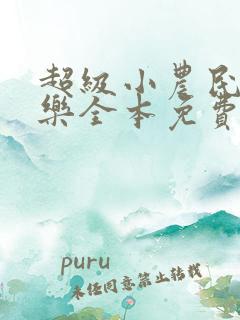 超級小農民
樂全本免費
puru
未经同意禁止转载